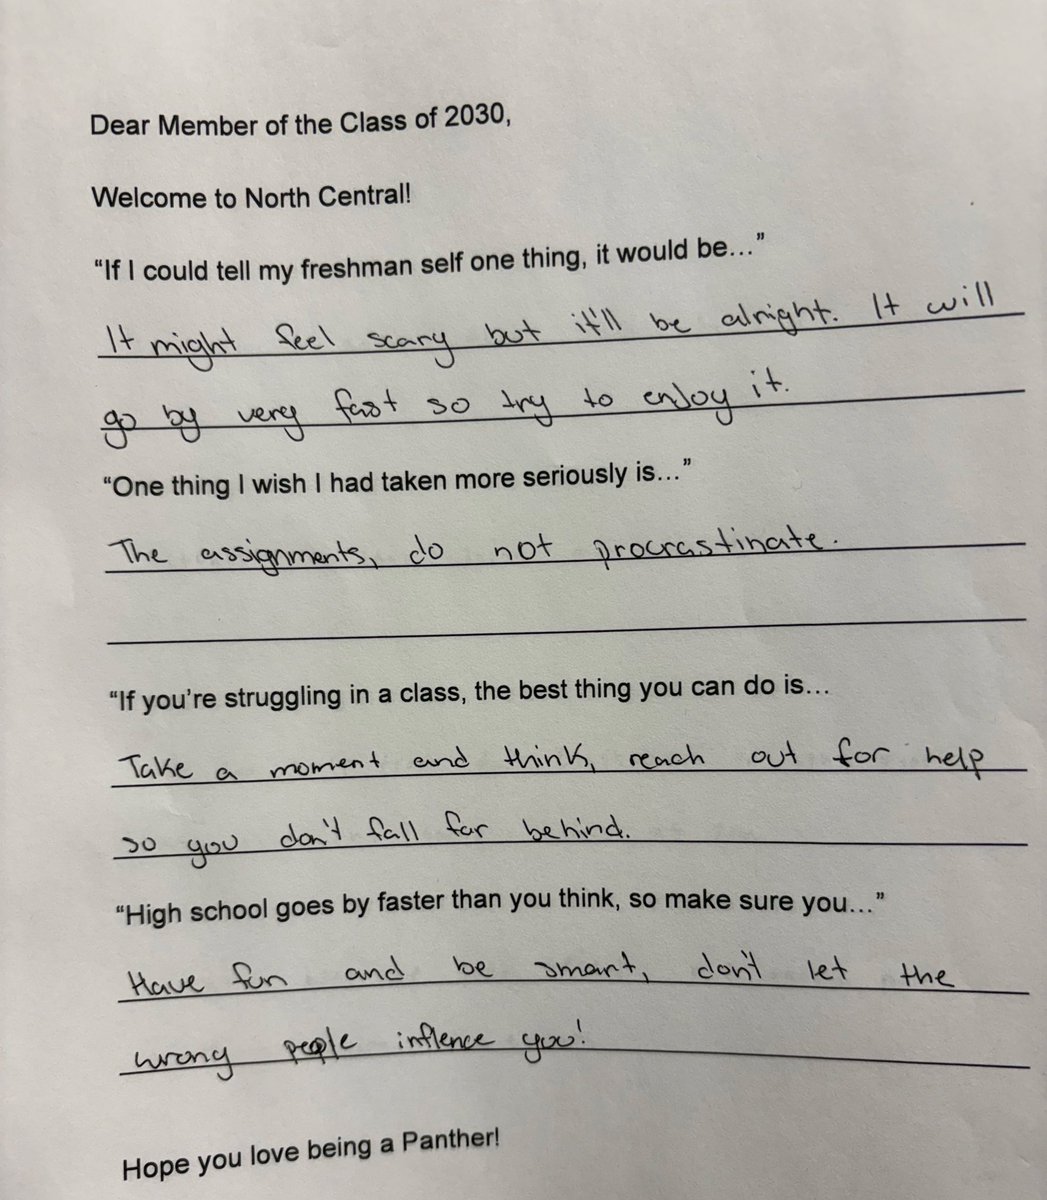 Dear Member of the Class of 2030,
Welcome to North Central!
“If I could tell my freshman self one thing, it would be...”
It might feel scary but it'll be alright. It will
go by very fast so try to enjoy it.
“One thing I wish I had taken more seriously is...”
The assignments, do not procrastinate.
“If you’re struggling in a class, the best thing you can do is...
Take a moment and think, reach out for help
so you don't fall far behind.
“High school goes by faster than you think, so make sure you...”
Have fun and be smart, don't let the
wrong people inflence you!
Hope you love being a Panther!